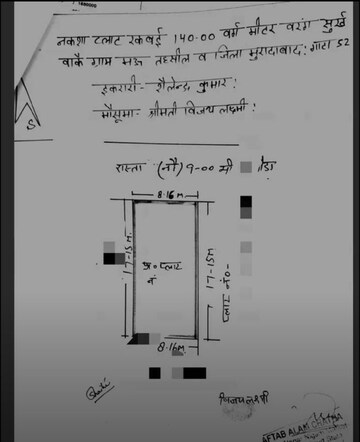 नकशा प्लाट रकबई 140.00 वर्ग मीटर वरंग सुर्ख
वाकै ग्राम मऊ तहसील व जिला मुरादाबाद: गाटा 52
इकरारी- शैलेन्द्र कुमार:
मौसूमा- श्रीमती विजय लक्ष्मी:
रास्ता (नौ) 9-00 मी चौडा
8.16 M.
17-15 M
प्लाट
नं
17-15M
प्लाट नं०-
8.16M.
S
विजयलक्ष्मी
AFTAB ALAM